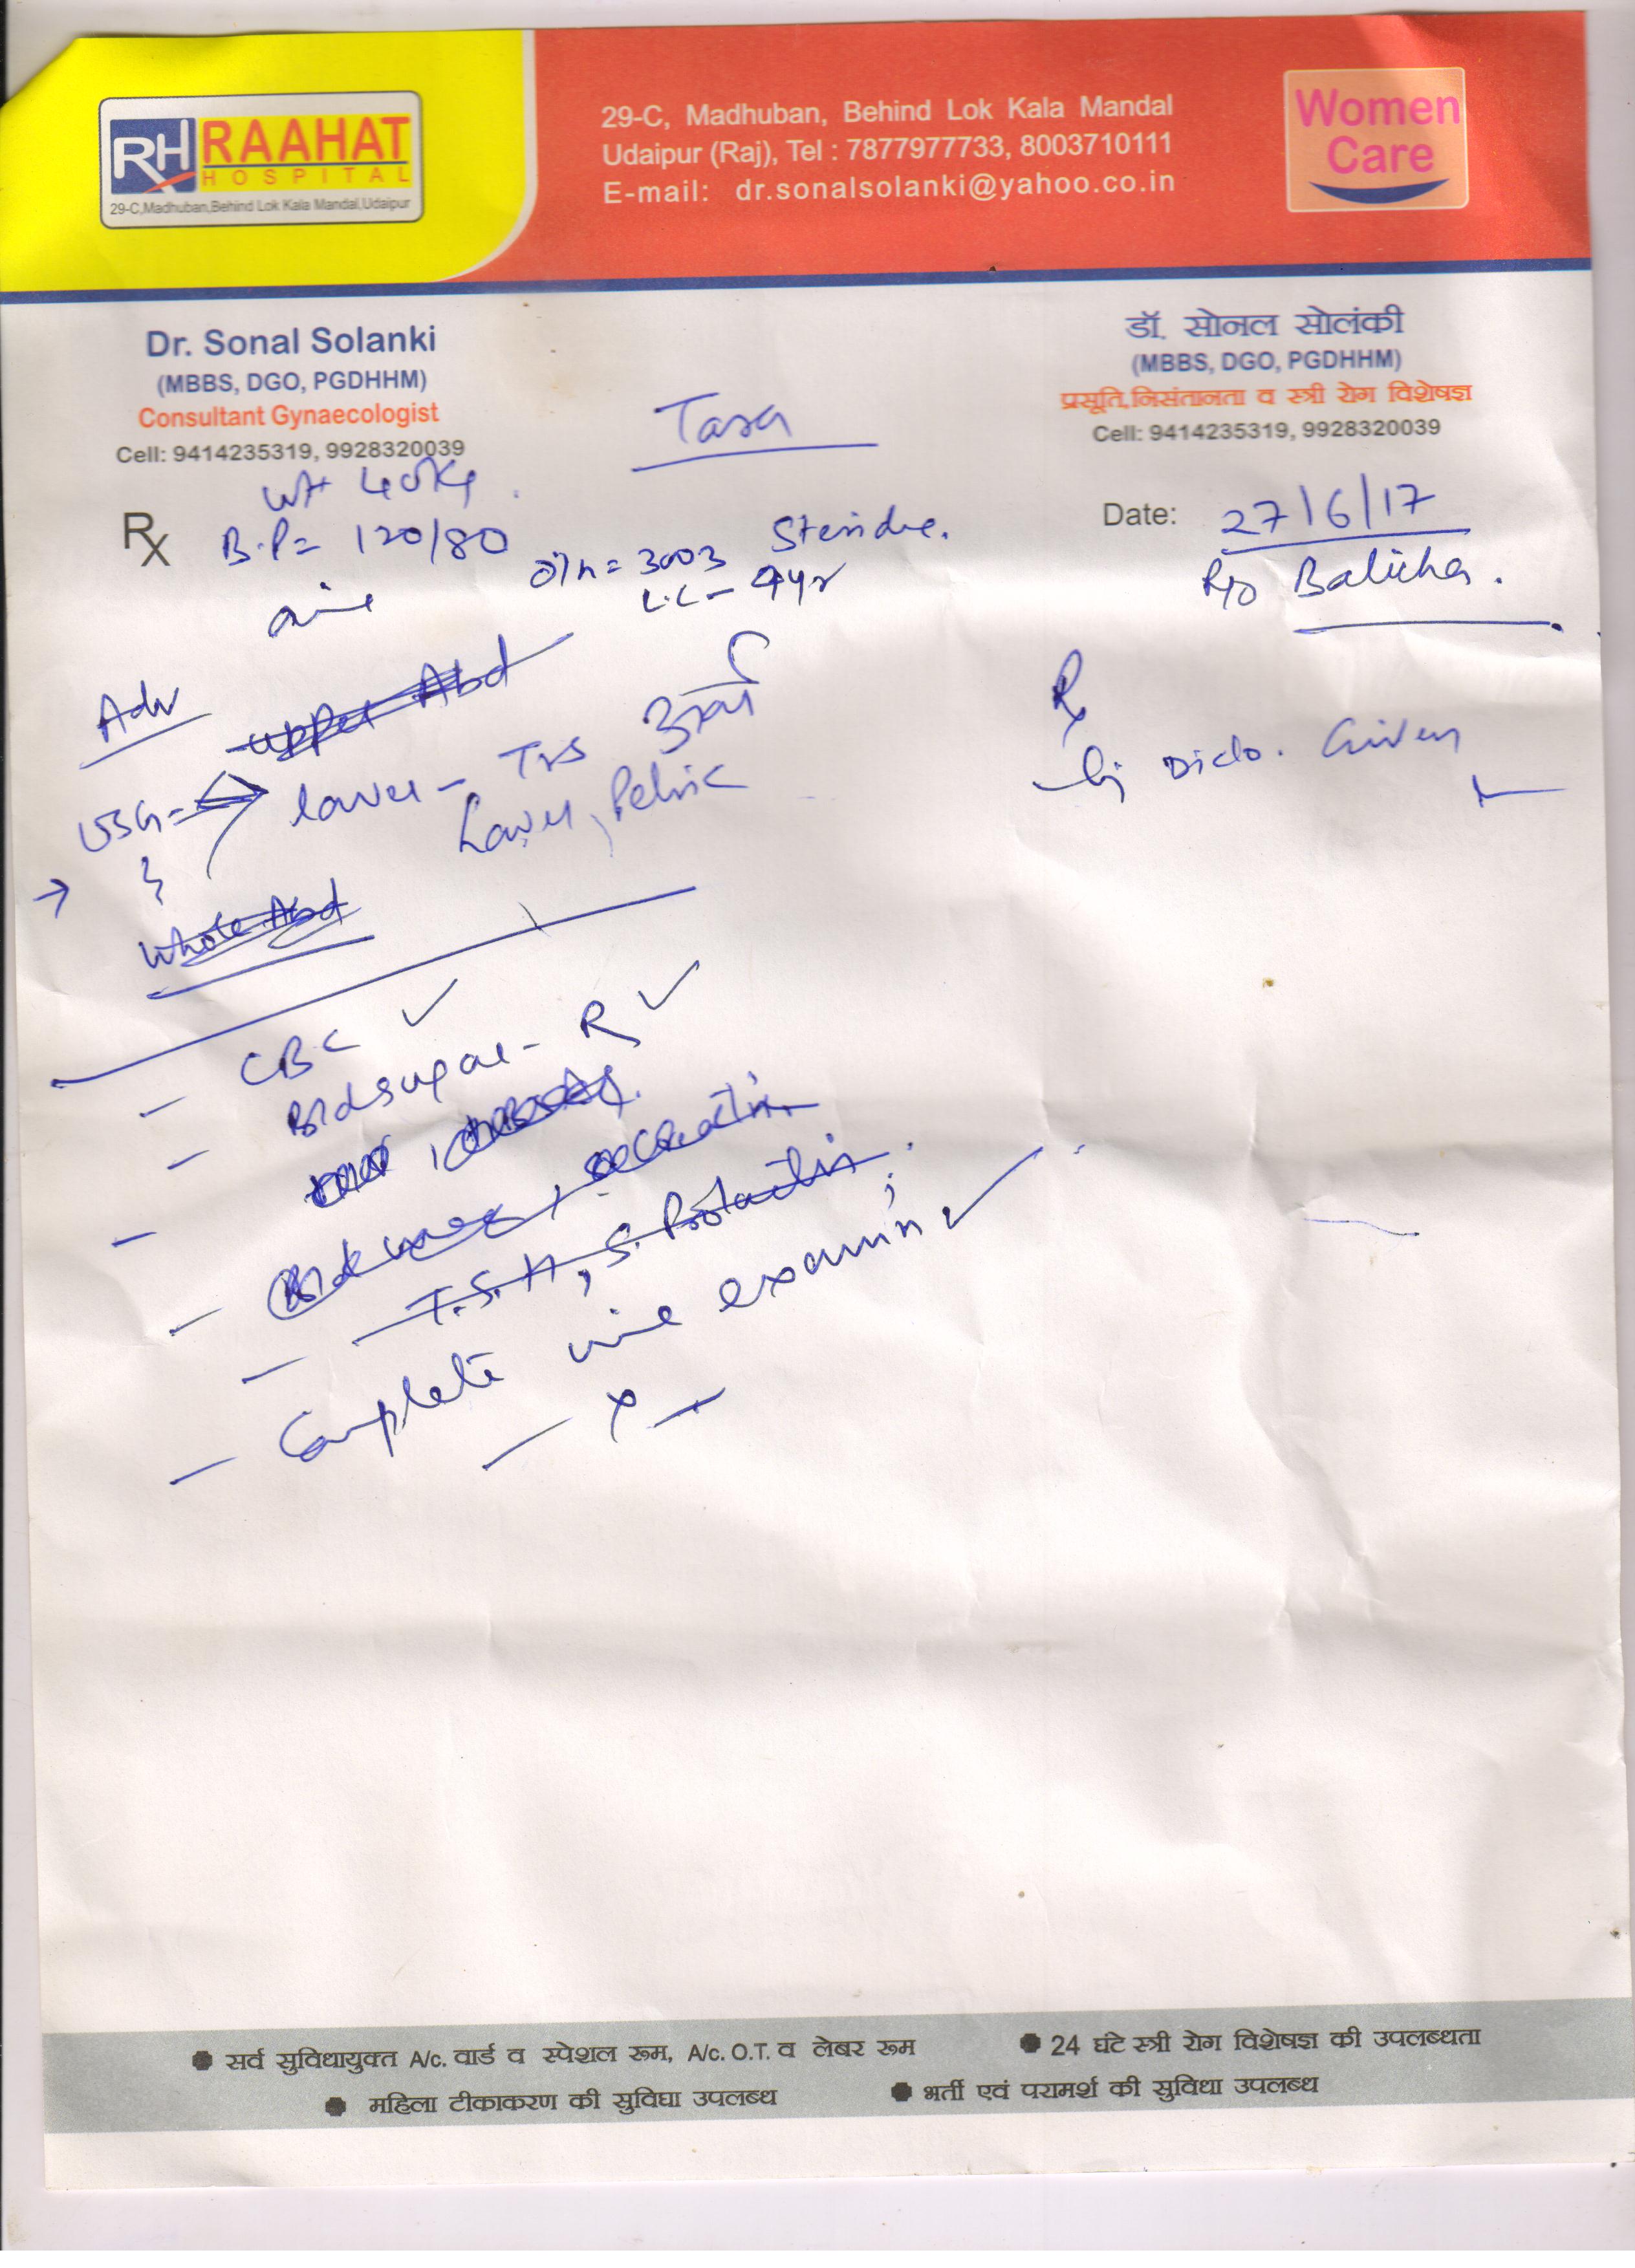 RH RAAHAT
HOSPITAL
29-C,Madhuban,Behind Lok Kala Mandal,Udaipur
29-C, Madhuban, Behind Lok Kala Mandal
Udaipur (Raj), Tel : 7877977733, 8003710111
E-mail: dr.sonalsolanki@yahoo.co.in
Women
Care
Dr. Sonal Solanki
(MBBS, DGO, PGDHHM)
Consultant Gynaecologist
Cell: 9414235319, 9928320039
डॉ. सोनल सोलंकी
(MBBS, DGO, PGDHHM)
प्रसूति,निसंतानता व स्त्री रोग विशेषज्ञ
Cell: 9414235319, 9928320039
Tara
Wt 40Kg.
Rx B.P= 120/80
O/h = 3003
L.C - 4yr
Date: 27/6/17
R/o Balicha.
Adv
upper Abd
USG = lower - TVS
Lower, Pelvic
Whole Abd
Rx
Inj Diclo. Given
- CBC ✓
- Bld sugar - R ✓
- T.S.H, S. Prolactin
- Complete urine examin ✓
- x -
सर्व सुविधायुक्त A/c. वार्ड व स्पेशल रूम, A/c. O.T. व लेबर रूम
24 घंटे स्त्री रोग विशेषज्ञ की उपलब्धता
महिला टीकाकरण की सुविधा उपलब्ध
भर्ती एवं परामर्श की सुविधा उपलब्ध